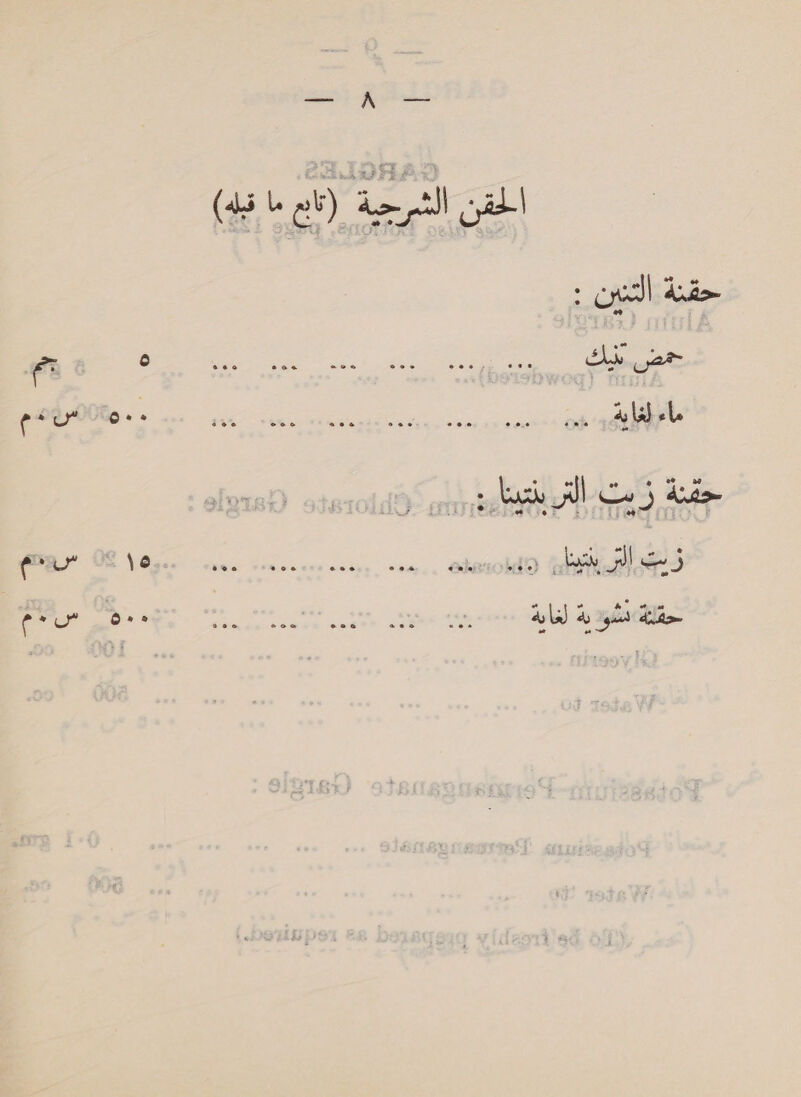 — ٨ —
الحقن الشرجية (تابع ما قبله)
حقنة التنين :
حمض تنيك ... ... ... ... ... ... ٥ جم
ماء لغاية ... ... ... ... ... ... ... ٥٠٠ س٠م
حقنة زيت التربنتينا :
زيت التربنتينا ... ... ... ... ... ... ١٥ س٠م
حقنة نشوية لغاية ... ... ... ... ... ٥٠٠ س٠م